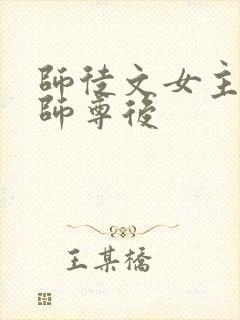 師徒文女主
師尊後
王某橋